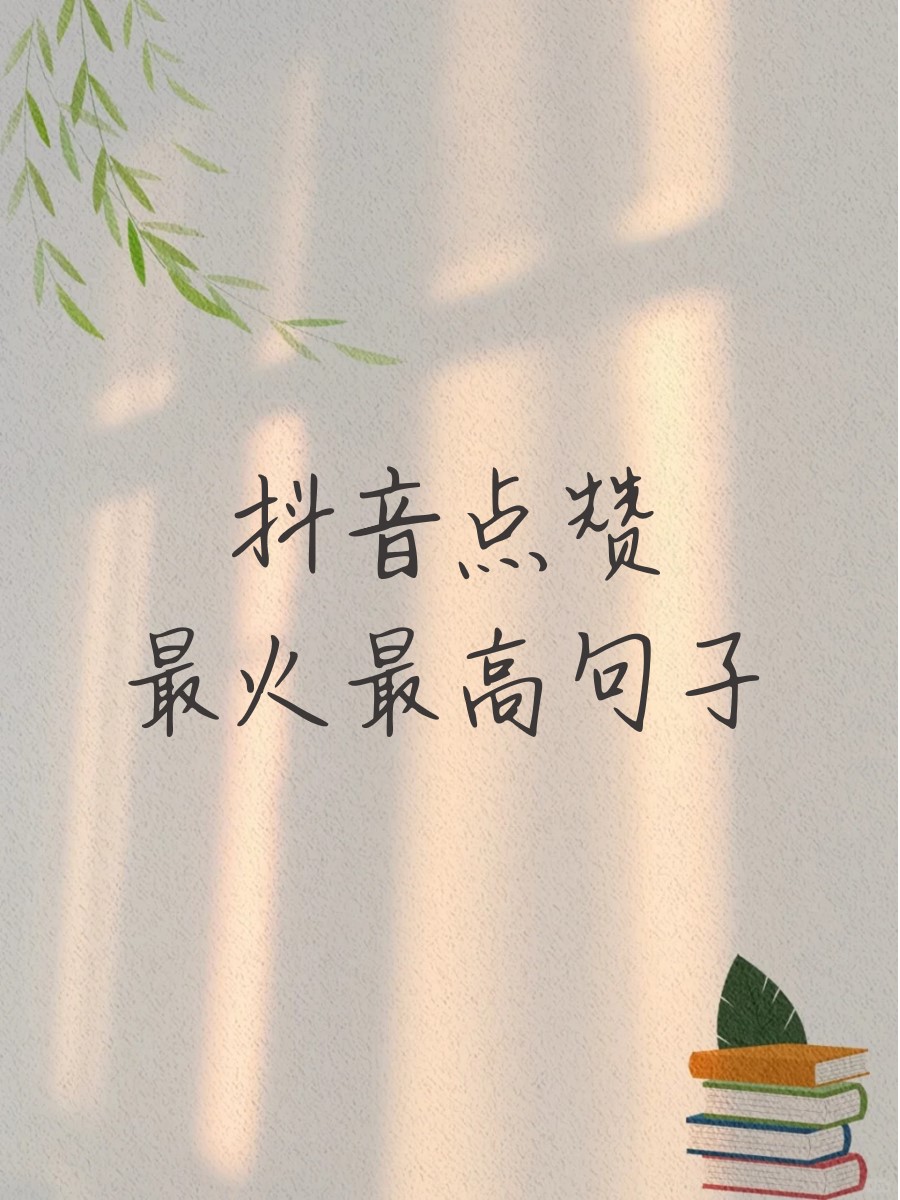 抖音点赞
最火最高句子